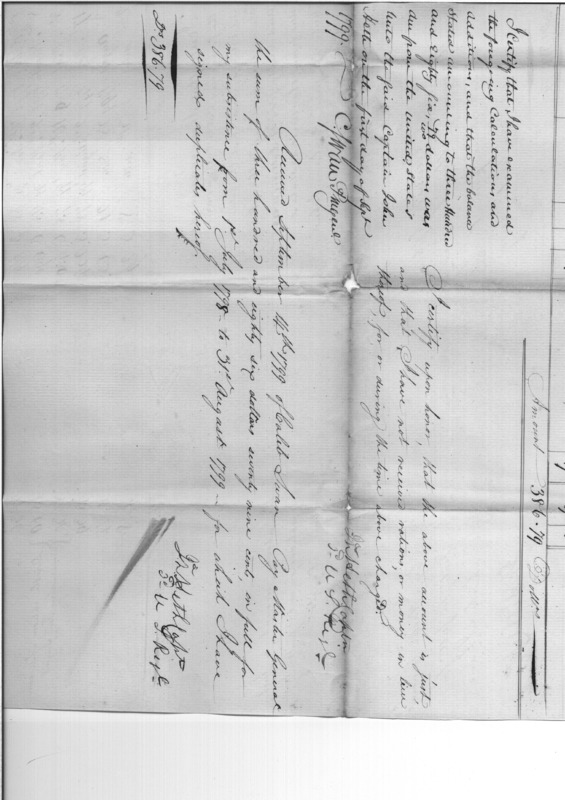 Amount 386.79 Dollars
I certify that I have examined
the foregoing Calculations and
additions, and that the balance
stated amounting to three hundred
and Eighty six, 79/100 dollars was
due from the United States
unto the said Captain John
Heth on the first day of Sept.
1799.
I certify upon honor, that the above account is just,
and that I have not received rations, or money in lieu
thereof, for or during the time above charged.
Jn Heth Captn
3d U S Regt
Received September 4th 1799 of Caleb Swan Pay Master General
the sum of three hundred and eighty six dollars seventy nine cents in full for
my subsistence from 1st July 1798 to 31st August 1799 — for which I have
signed duplicates hereof.
Drs 386.79
Jn Heth Captn
3d U S Regt